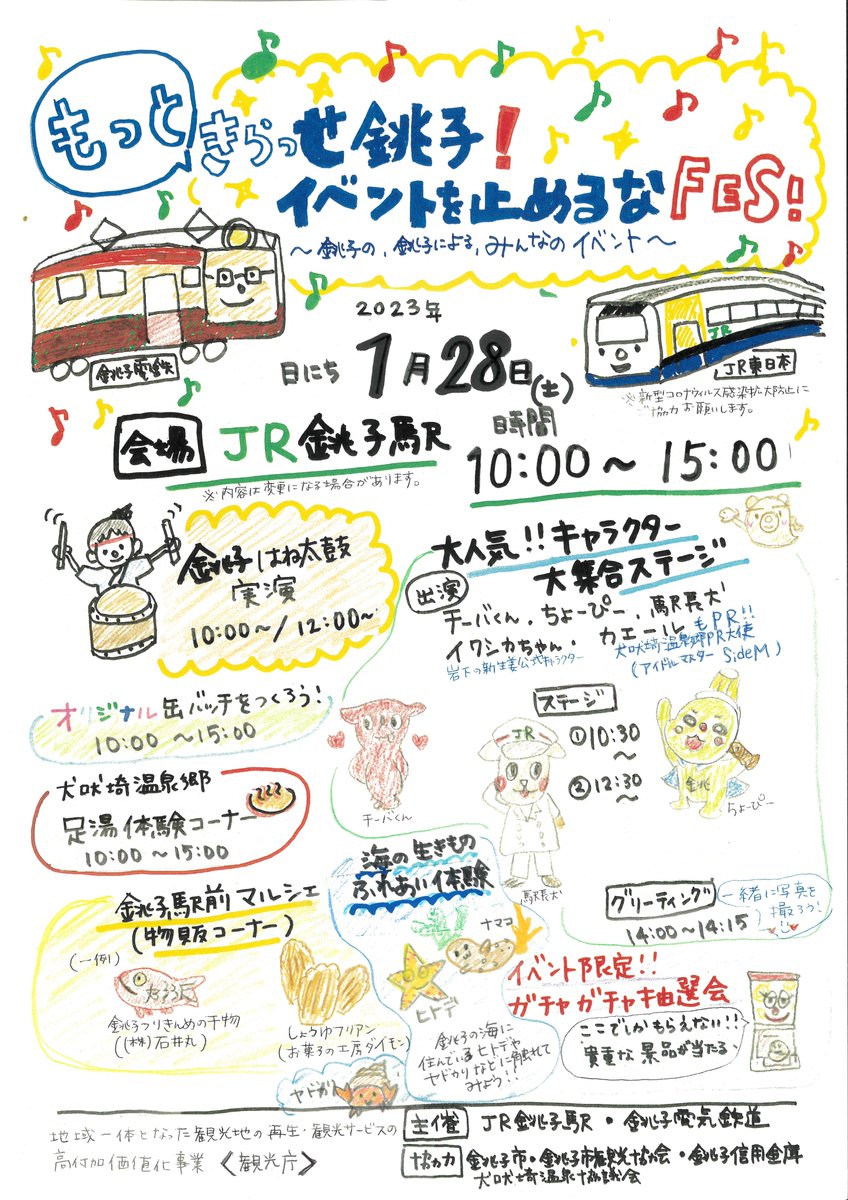 もっと
きらっせ銚子!
イベントを止めるな FES!
～銚子の、銚子による、みんなのイベント～
銚子電鉄
2023年
日にち 1月28日(土)
JR
JR東日本
※新型コロナウィルス感染拡大防止に
ご協力お願いします。
会場 JR銚子駅
※内容は変更になる場合があります。
時間
10:00～15:00
銚子はね太鼓
実演
10:00～/12:00～
大人気!!キャラクター
大集合ステージ
出演
チーバくん、ちょーぴー、駅長犬
イワシカちゃん・
岩下の新生姜公式キャラクター
カエール もPR!!
犬吠埼温泉郷PR大使
(アイドルマスター SideM)
オリジナル缶バッチをつくろう!
10:00～15:00
ステージ
①10:30
～
②12:30
～
JR
銚
チーバくん
駅長犬
ちょーぴー
犬吠埼温泉郷
足湯体験コーナー
10:00～15:00
グリーティング
14:00～14:15
一緒に写真を
撮ろう!
銚子駅前マルシェ
(物販コーナー)
(一例)
銚子つりきんめの干物
((株)石井丸)
しょうゆフリアン
(お菓子の工房ダイモン)
海の生きもの
ふれあい体験
ナマコ
ヒトデ
銚子の海に
住んでいるヒトデや
ヤドカリなどに触れて
みよう!!
ヤドカリ
イベント限定!!
ガチャガチャ抽選会
ここでしかもらえない!!
貴重な景品が当たる、
地域一体となった観光地の再生・観光サービスの
高付加価値化事業《観光庁》
主催 JR銚子駅・銚子電気鉄道
協力 銚子市・銚子市観光協会・銚子信用金庫
犬吠埼温泉協議会